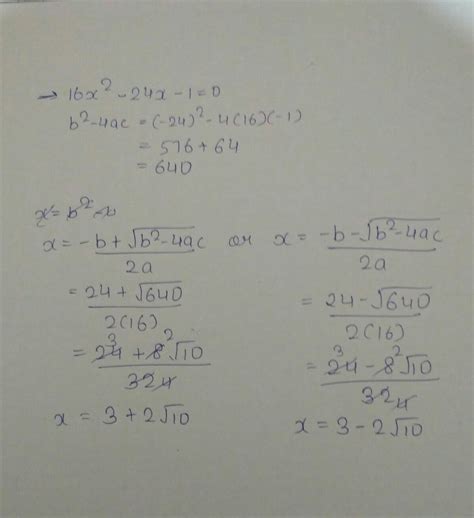 → 16x² - 24x - 1 = 0
b² - 4ac = (-24)² - 4(16)(-1)
= 576 + 64
= 640
x = b²
x = -b + √b² - 4ac / 2a or x = -b - √b² - 4ac / 2a
= 24 + √640 / 2(16)
= 24 - √640 / 2(16)
= 3 24 + 8 2 √10 / 32 4
= 3 24 - 8 2 √10 / 32 4
x = 3 + 2√10
x = 3 - 2√10